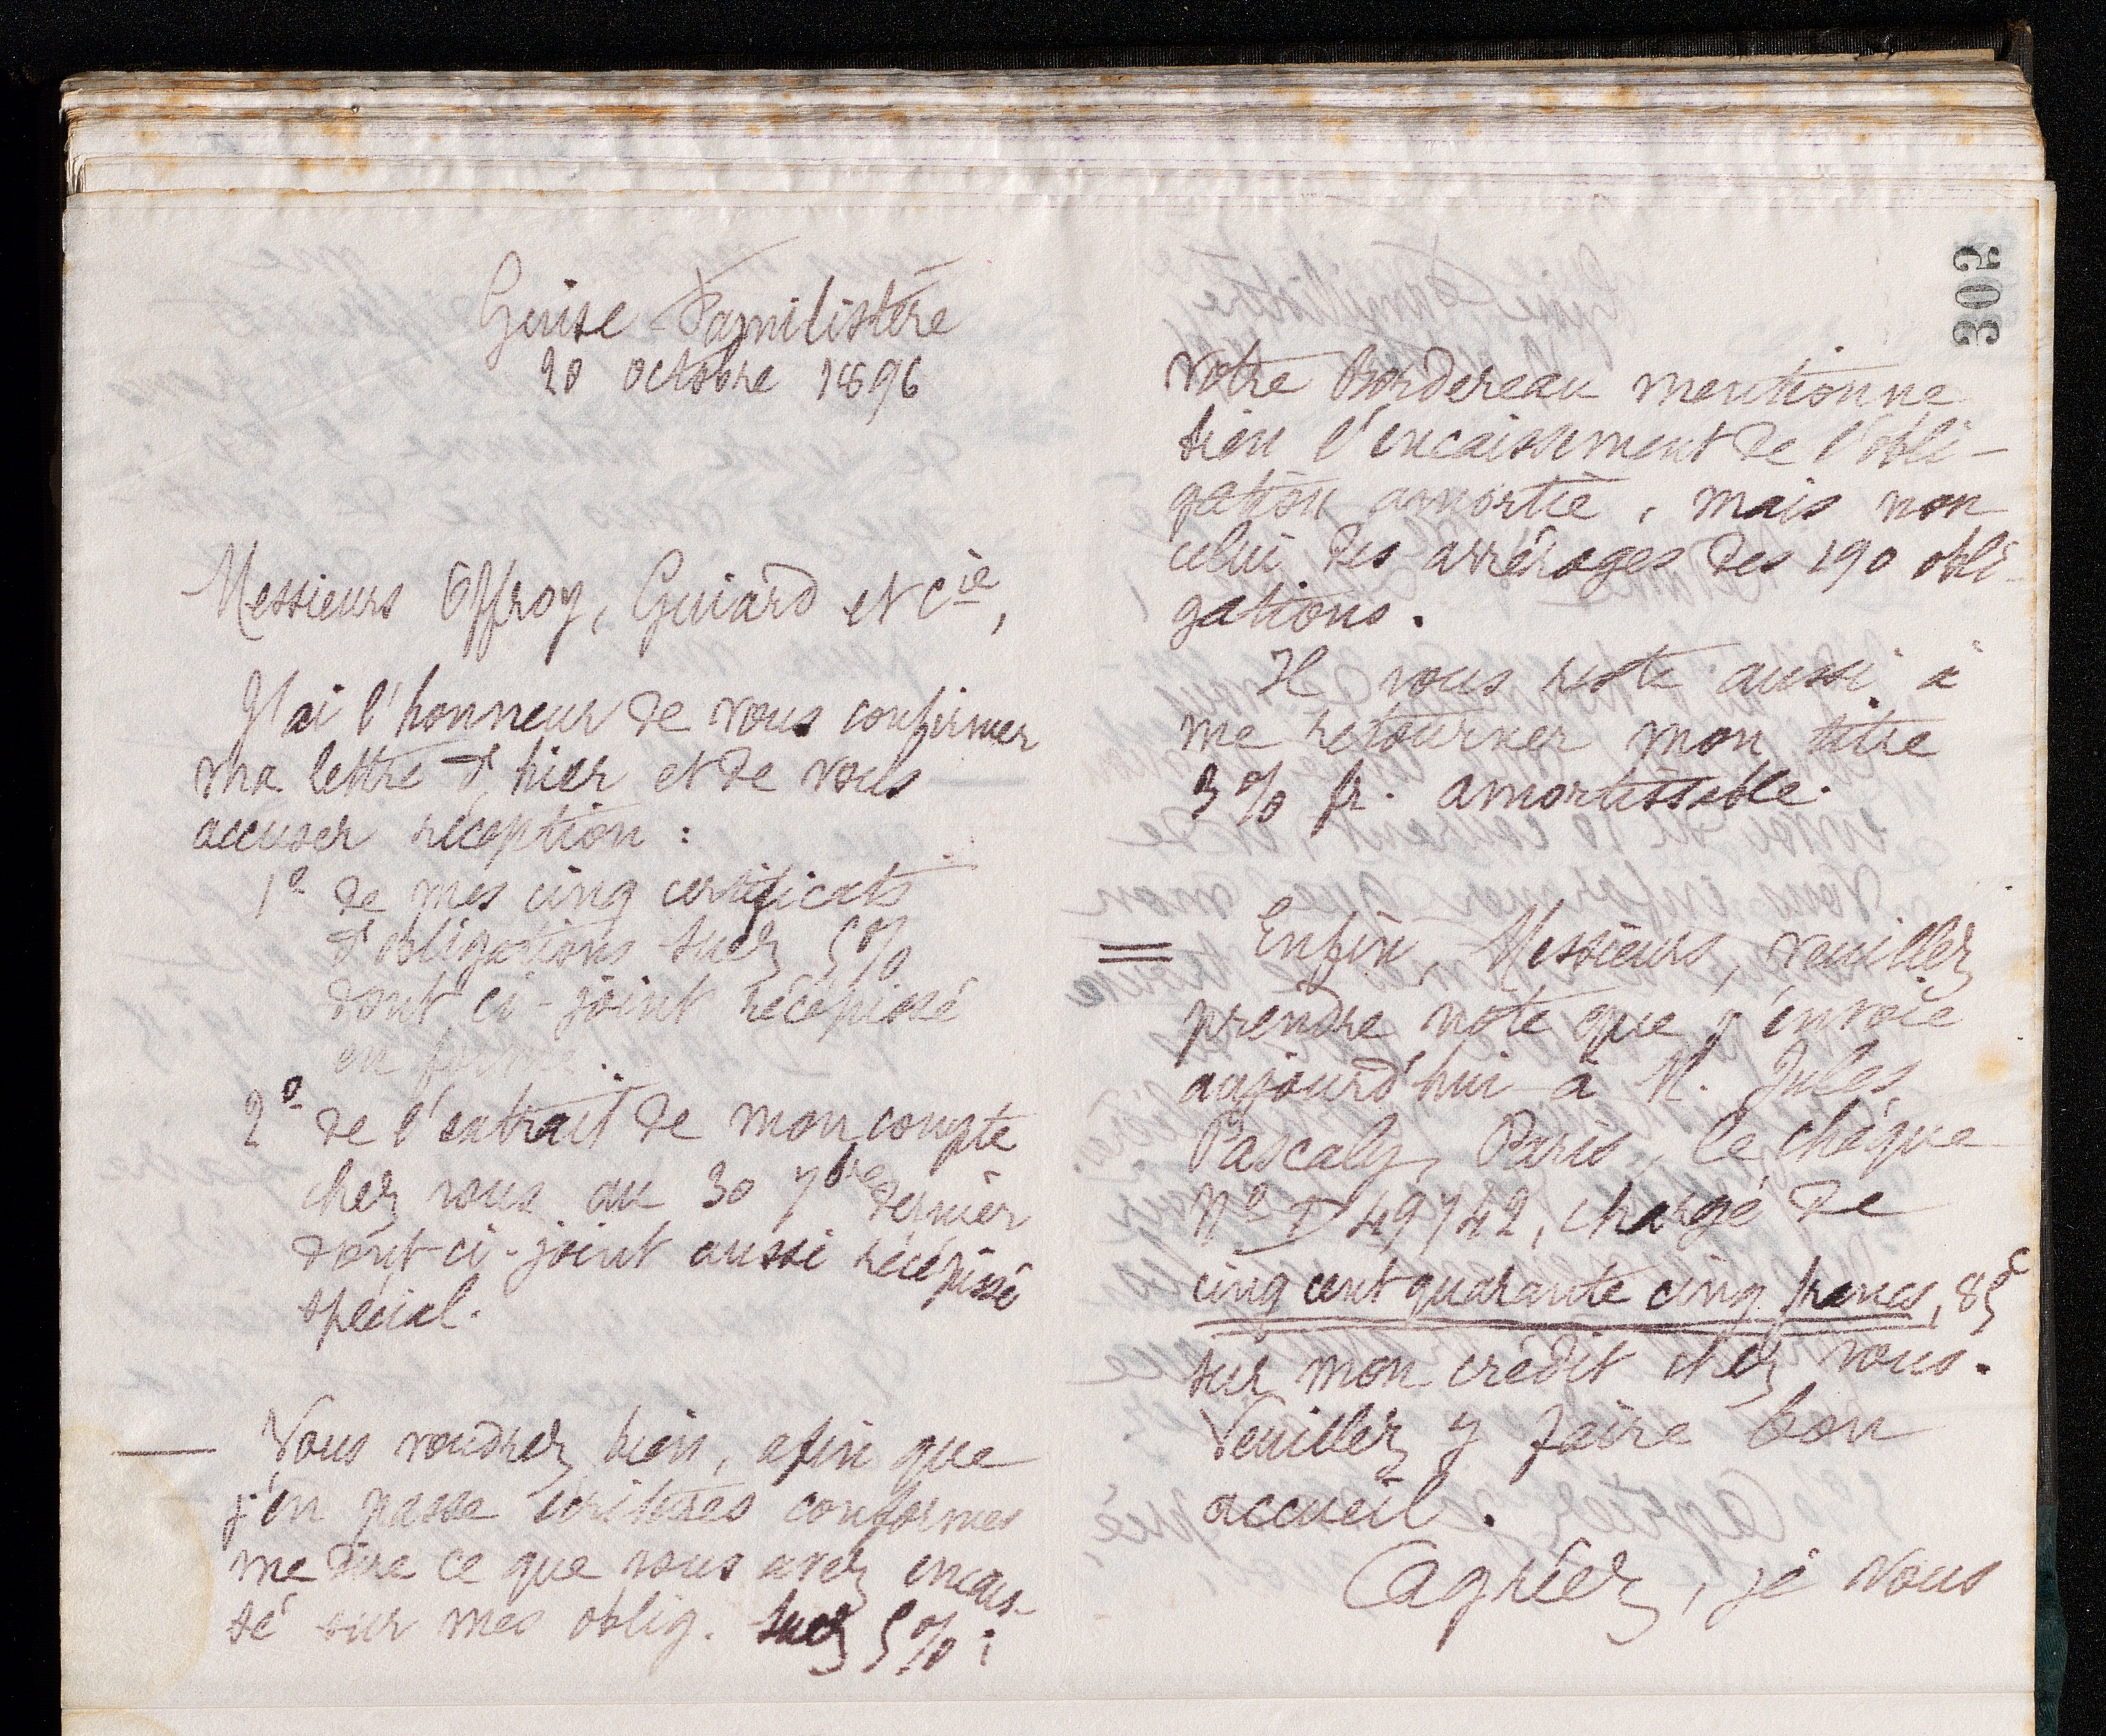 Guise Familistère
20 octobre 1896
Messieurs Offroy, Guiard et Cie,
J'ai l'honneur de vous confirmer
ma lettre d'hier et de vous
accuser réception :
1º de mes cinq certificats
d'obligations Suez 5%
dont ci-joint récépissé
en forme.
2º de l'extrait de mon compte
chez vous au 30 7bre dernier
dont ci-joint aussi récépissé
spécial.
Vous voudrez bien, afin que
j'en passe écritures conformes
me dire ce que vous avez encais-
sé sur mes oblig. Suez 5% ;
305
votre Bordereau mentionne
bien l'encaissement de l'obli-
gation amortie, mais non
celui des arrérages des 190 obli-
gations.
Il vous reste aussi à
me retourner mon titre
3% fr. amortissable.
Enfin, Messieurs, veuillez
prendre note que j'envoie
aujourd'hui à M. Jules
Pascaly, Paris, le chèque
Nº D 49742, chargé de
cinq cent quarante cinq francs, 85c
sur mon crédit chez vous.
Veuillez y faire bon
accueil.
Agréez, je vous